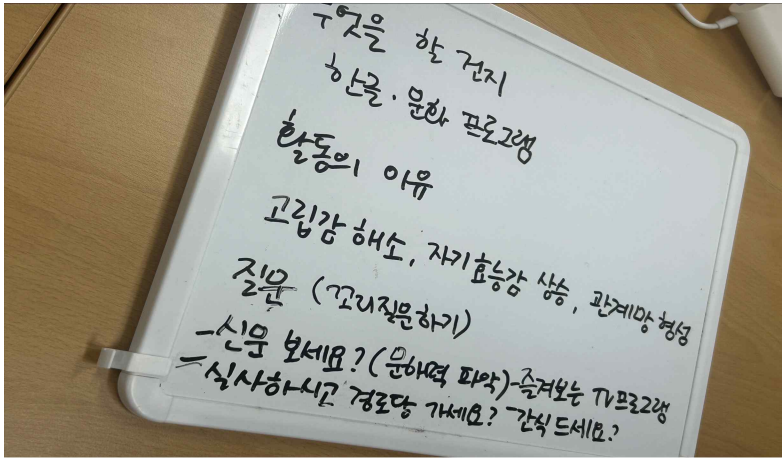 무엇을 할 건지
한글·문화 프로그램
활동의 이유
고립감 해소, 자기효능감 상승, 관계망 형성
질문 (꼬리질문하기)
-신문 보세요? (문해력 파악)-즐겨보는 TV프로그램
-식사하시고 경로당 가세요? 간식 드세요?